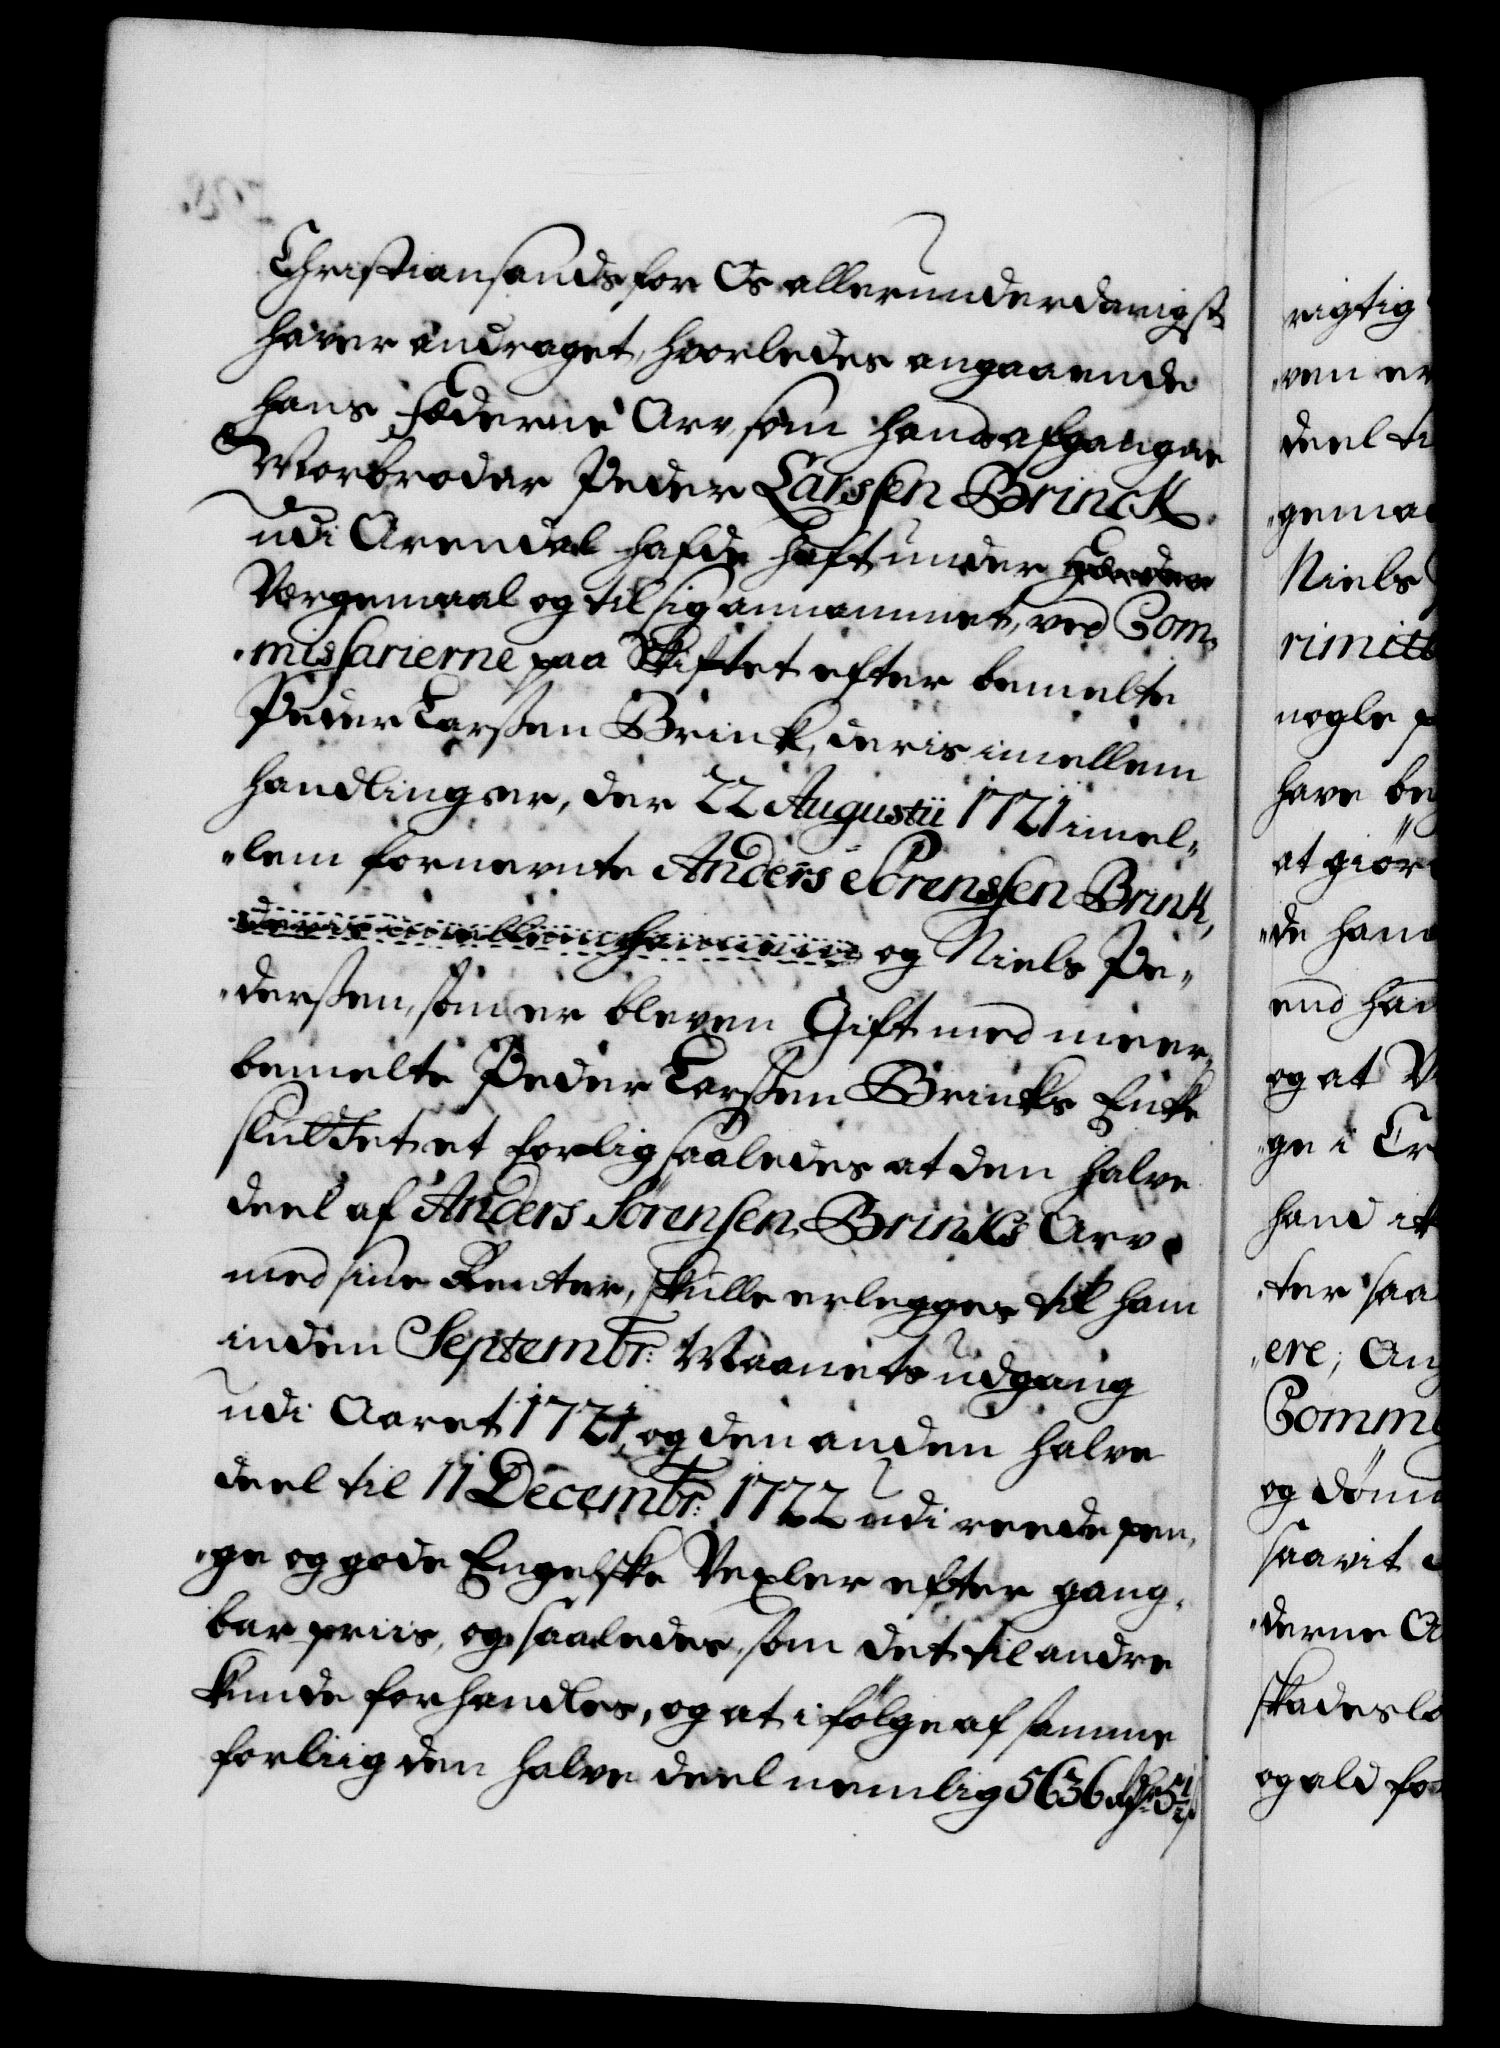 Christiansands for Os allerunderdanigst
haver andraget, hvorledes angaaende
hans Fæderne Arv, som hands afgangne
Morbroder Peder Larssen Brinck
udi Arendal hafde haft under
Vergemaal og til sig annammet, ved Com-
missarierne paa Skiftet efter bemelte
Peder Larssen Brink, deris imellem
handlinger, der 22 Augustii 1721 imel-
lem fornevnte Anders Sørenssen Brink,
deris imellem og Niels Pe-
derssen, som er bleven Gift med meer-
bemelte Peder Larssen Brinks Enke
sluttet et forlig saaledes at den halve
deel af Anders Sørensen Brinks Arv
med sine Renter, skulle erlegges til ham
inden Septembr: Maanets udgang
udi Aaret 1721, og den anden halve
deel til 11 Decembr: 1722 udi reede pen-
ge og gode Engelske Vexler efter gang-
bar priis, og saaledes, som det til andre
kunde forhandles, og at i følge af samme
forliig den halve deel nemlig 5636 rdr: 5½ s
rigtig
ven er
deel ti
gema
Niels
rimitt
nogle p
have be
at giør
de han
end han
og at V
ge i Cr
hand it
ter saa
ere; An
Comm
og døm
saavit
derne A
skadeslø
og ald fo